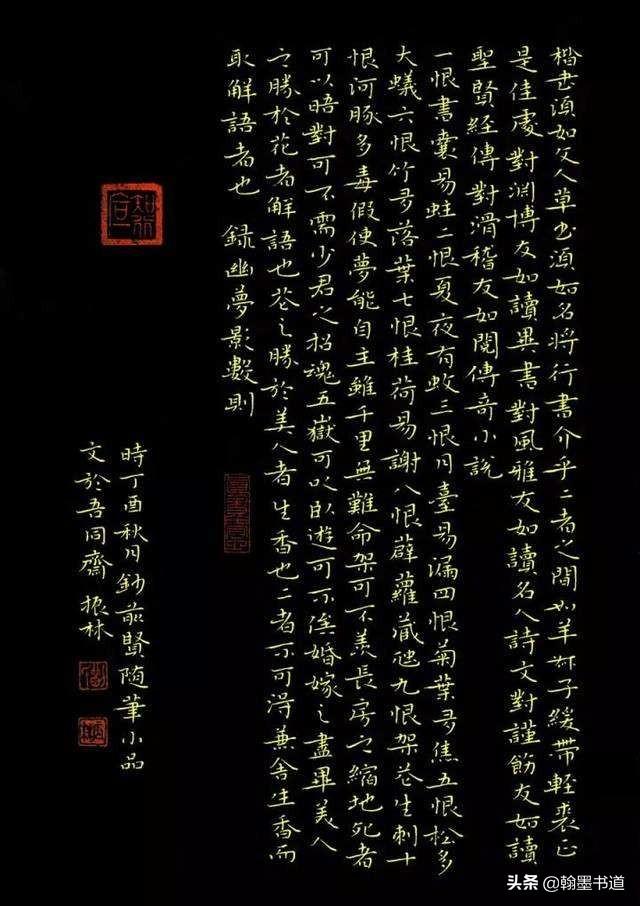 楷書須如文人草書須如名將行書介乎二者之間如羊叔子緩帶輕裘正
是佳處 對淵博友如讀異書對風雅友如讀名人詩文對謹飭友如讀
聖賢經傳對滑稽友如閱傳奇小說
一恨書囊易蛀二恨夏夜有蚊三恨月臺易漏四恨菊葉多焦五恨松多
大蟻六恨竹多落葉七恨桂荷易謝八恨薜蘿藏虺九恨架花生刺十
恨河豚多毒假使夢能自主雖千里無難命架可不羨長房之縮地死者
可以晤對可不需少君之招魂五嶽可以臥遊可不俟婚嫁之盡畢美人
之勝於花者解語也花之勝於美人者生香也二者不可得兼舍生香而
取解語者也 錄幽夢影數則
時丁酉秋月鈔前賢隨筆小品
文於吾同齋 振林
知行合一
头条 @翰墨书道